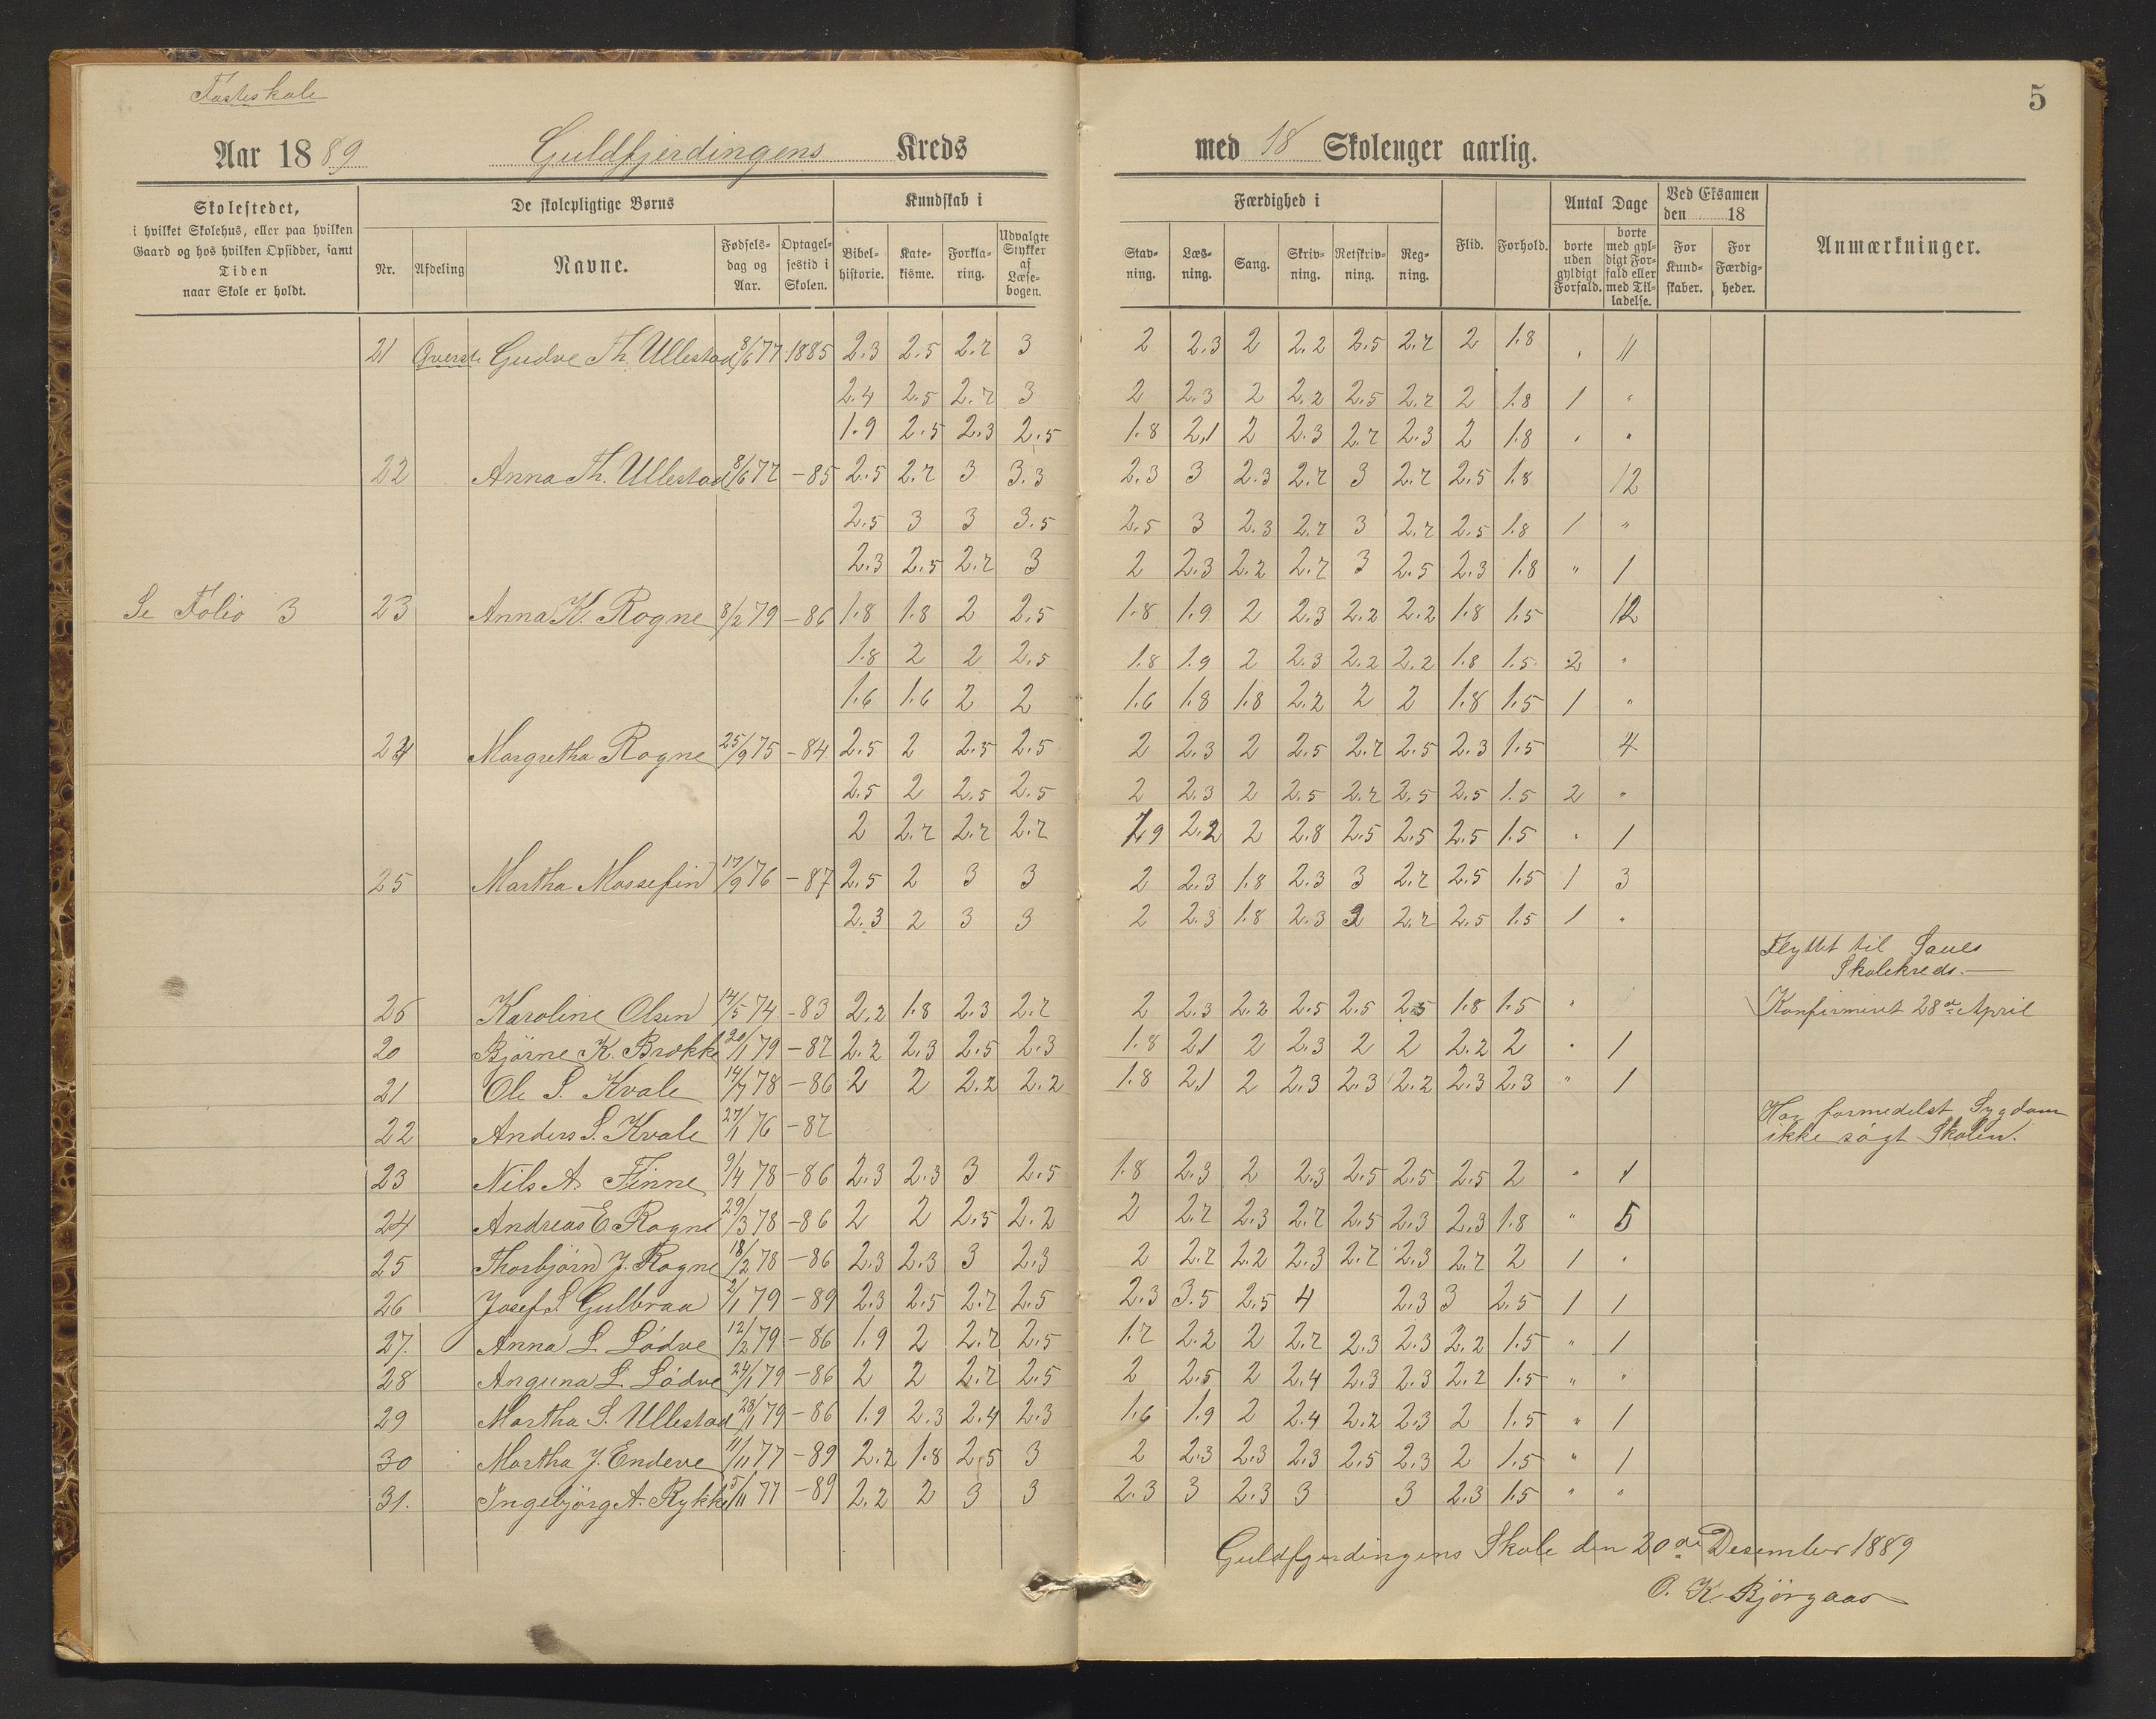 Fasteskole
5
Aar 1889 Guldfjerdingens Kreds med 18 Skoleuger aarlig.
Skolestedet, i hvilket Skolehus, eller paa hvilken Gaard og hos hvilken Opsidder, samt Tiden naar Skole er holdt.
De skolepligtige Børns
Nr. Afdeling Navne. Fødselsdag og Aar. Optagelsestid i Skolen.
Kundskab i
Bibelhistorie. Katekisme. Forklaring. Udvalgte Stykker af Læsebogen.
Færdighed i
Stavning. Læsning. Sang. Skrivning. Retskrivning. Regning.
Flid. Forhold.
Antal Dage
borte uden gyldigt Forfald. borte med gyldigt Forfald eller med Tilladelse.
Ved Eksamen den 18
For Kundskaber. For Færdigheder.
Anmærkninger.
21 Øverste Gudve Th. Ullestad 8/6 77 1885 2.3 2.5 2.7 3 2 2.3 2 2.2 2.5 2.7 2 1.8 . 11
2.4 2.5 2.7 3 2 2.3 2 2.2 2.5 2.7 2 1.8 1 "
1.9 2.5 2.3 2.5 1.8 2.1 2 2.3 2.7 2.3 2 1.8 " "
22 Anna Th. Ullestad 8/6 77 -85 2.5 2.7 3 3.3 2.3 3 2.3 2.7 3 2.7 2.5 1.8 12
2.5 3 3 3.5 2.5 3 2.3 2.7 3 2.7 2.5 1.8 1 "
2.3 2.5 2.7 3 2 2.3 2.2 2.7 3 2.5 2.3 1.8 " 1
Se Folio 3 23 Anna K. Rogne 8/2 79 -86 1.8 1.8 2 2.5 1.8 1.9 2 2.3 2.2 2.2 1.8 1.5 12
1.8 2 2 2.5 1.8 1.9 2 2.3 2.2 2.2 1.8 1.5 2 "
1.6 1.6 2 2 1.6 1.8 1.8 2.2 2 2 1.8 1.5 1 "
24 Margretha Rogne 25/9 75 -84 2.5 2 2.5 2.5 2 2.3 2 2.5 2.7 2.5 2.3 1.5 4
2.5 2 2.5 2.5 2 2.3 2 2.5 2.7 2.5 2.5 1.5 2 "
2 2.7 2.7 2.7 1.9 2.2 2 2.8 2.5 2.5 2.5 1.5 " 1
25 Martha Mossefin 17/9 76 -87 2.5 2 3 3 2 2.3 1.8 2.3 3 2.7 2.5 1.5 1 3
2.3 2 3 3 2 2.3 1.8 2.3 3 2.7 2.5 1.5 1 "
Flyttet til Saues
Skolekreds.—
26 Karoline Olsen 14/5 74 -83 2.2 1.8 2.3 2.7 2 2.3 2.2 2.5 2.5 2.5 1.8 1.5 " Konfirmeret 28de April
20 Bjørne K. Brekke 20/1 79 -87 2.2 2.3 2.5 2.3 1.8 2.1 2 2.3 2 2 2.2 2 " 1
21 Ole S. Kvale 14/7 78 -86 2 2 2.2 2.2 1.8 2.1 2 2.3 2.3 2.2 2.3 2.3 " 1
22 Anders S. Kvale 27/1 76 -87 Har formedelst Sygdom
ikke søgt Skolen.
23 Nils A. Finne 9/4 78 -86 2.3 2.3 3 2.5 1.8 2.3 2 2.3 2.5 2.5 2.5 2 " 1
24 Andreas E Rogne 29/3 78 -86 2 2 2.5 2.2 2 2.7 2.3 2.7 2.5 2.3 2.3 1.8 " 5
25 Thorbjørn J. Rogne 18/2 78 -86 2.3 2.3 3 2.3 2 2.7 2.2 2.3 2.7 2.3 2.7 2 1 "
26 Josef S. Gulbraa 2/1 79 -89 2.3 2.5 2.7 2.5 2.3 3.5 2.5 4 2.3 3 2.5 1 1
27. Anna L. Lödve 12/2 79 -86 1.9 2 2.7 2.5 1.7 2.2 2 2.7 2.3 2.3 2.2 1.5 " 1
28 Anguna L. Lödve 24/1 79 -86 2 2 2.7 2.5 2 2.5 2 2.4 2.3 2.3 2.2 1.5 " "
29 Martha S. Ullestad 28/1 79 -86 1.9 2.3 2.4 2.3 1.6 1.9 2 2.4 2.2 2.3 2 1.5 " 1
30 Martha J. Endeve 11/11 77 -89 2.2 1.8 2.5 3 2 2.3 2.3 2.3 2.5 2.3 2 1.5 " 1
31. Ingebjørg A. Rykke 5/11 77 -89 2.2 2 3 3 2.3 3 2.3 3 3 2.3 1.5 " "
Guldfjerdingens Skole den 20de Desember 1889
O. K. Bjørgaas